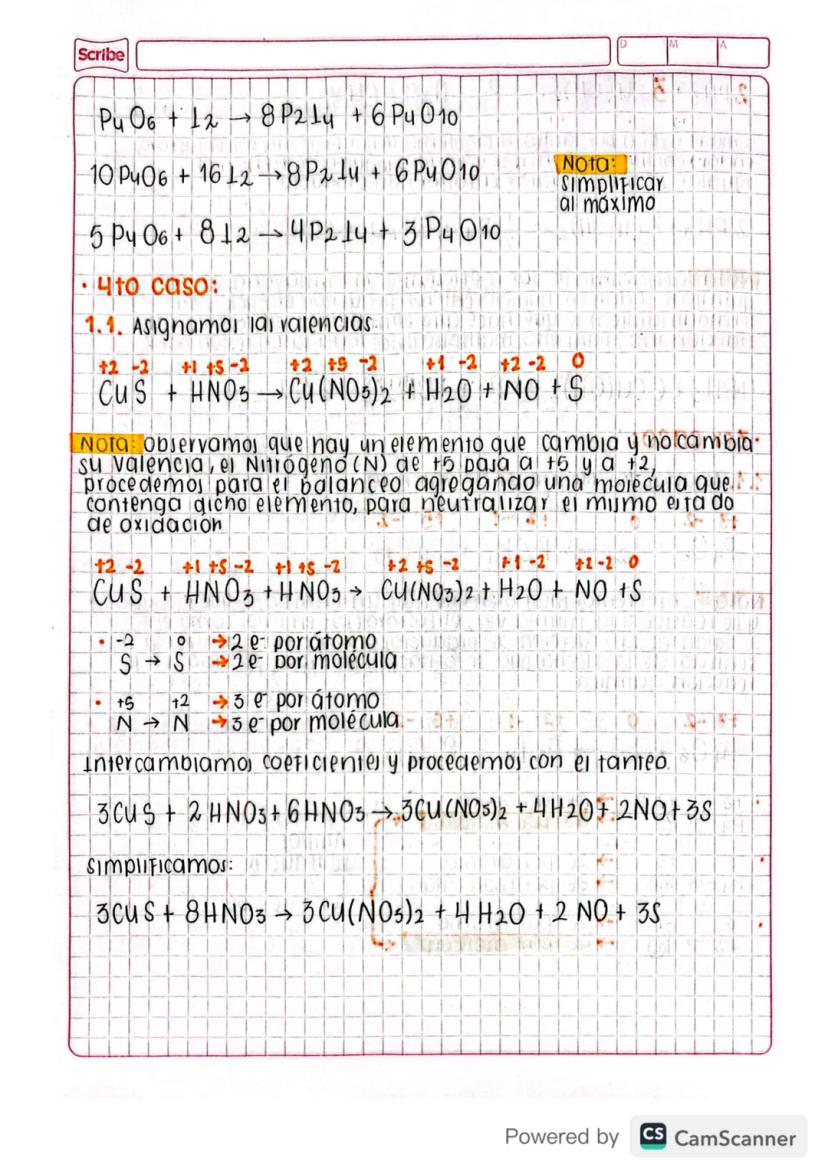 Scribe
D M A
P4O6 + I2 → 8P2I4 + 6P4O10
10P4O6 + 16I2 → 8P2I4 + 6P4O10
Nota:
simplificar
al máximo
5P4O6 + 8I2 → 4P2I4 + 3P4O10
• 4to caso:
1.1. Asignamos las valencias.
+2 -2 +1 +5 -2 +2 +5 -2 +1 -2 +2 -2 0
CuS + HNO3 → Cu(NO3)2 + H2O + NO + S
Nota: Observamos que hay un elemento que cambia y no cambia
su valencia, el Nitrógeno (N) de +5 pasa a +5 y a +2,
procedemos para el balanceo agregando una molécula que
contenga dicho elemento, para neutralizar el mismo estado
de oxidación
+2 -2 +1 +5 -2 +1 +5 -2 +2 +5 -2 +1 -2 +2 -2 0
CuS + HNO3 + HNO3 → Cu(NO3)2 + H2O + NO + S
• -2 0 → 2 e- por átomo
S → S → 2e- por molécula
• +5 +2 → 3 e- por átomo
N → N → 3e- por molécula
Intercambiamos coeficientes y procedemos con el tanteo
3CuS + 2HNO3 + 6HNO3 → 3Cu(NO3)2 + 4H2O + 2NO + 3S
Simplificamos:
3CuS + 8HNO3 → 3Cu(NO3)2 + 4H2O + 2NO + 3S
Powered by CS CamScanner